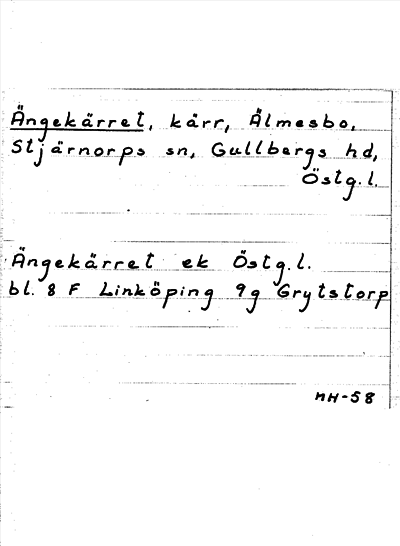 Ängekärret, kärr, Älmesbo,
Stjärnorps sn, Gullbergs hd,
Östg.l.
Ängekärret ek Östg.l.
bl. 8 F Linköping 9g Grytstorp
MH-58